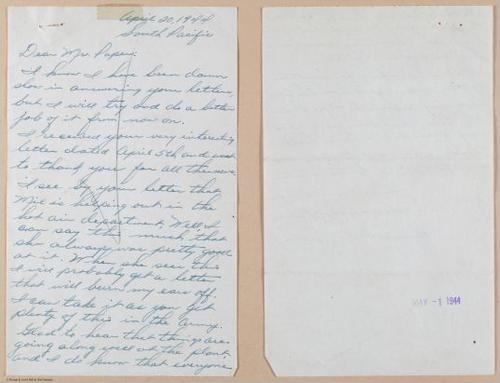 April 20, 1944
South Pacific
Dear Mr. Paper:
I know I have been damn
slow in answering your letters,
but I will try and do a better
job of it from now on.
I received your very interesting
letter dated April 5th and want
to thank you for all the news.
I see by your letter that
Mil is helping out in the
hot air department. Well I
can say this much that
she always was pretty good
at it. When she sees this
I will probably get a letter
that will burn my ears off.
I can take it as you get
plenty of this in the Army.
Glad to hear that things are
going along well at the plant
and I do know that everyone
MAY -1 1944